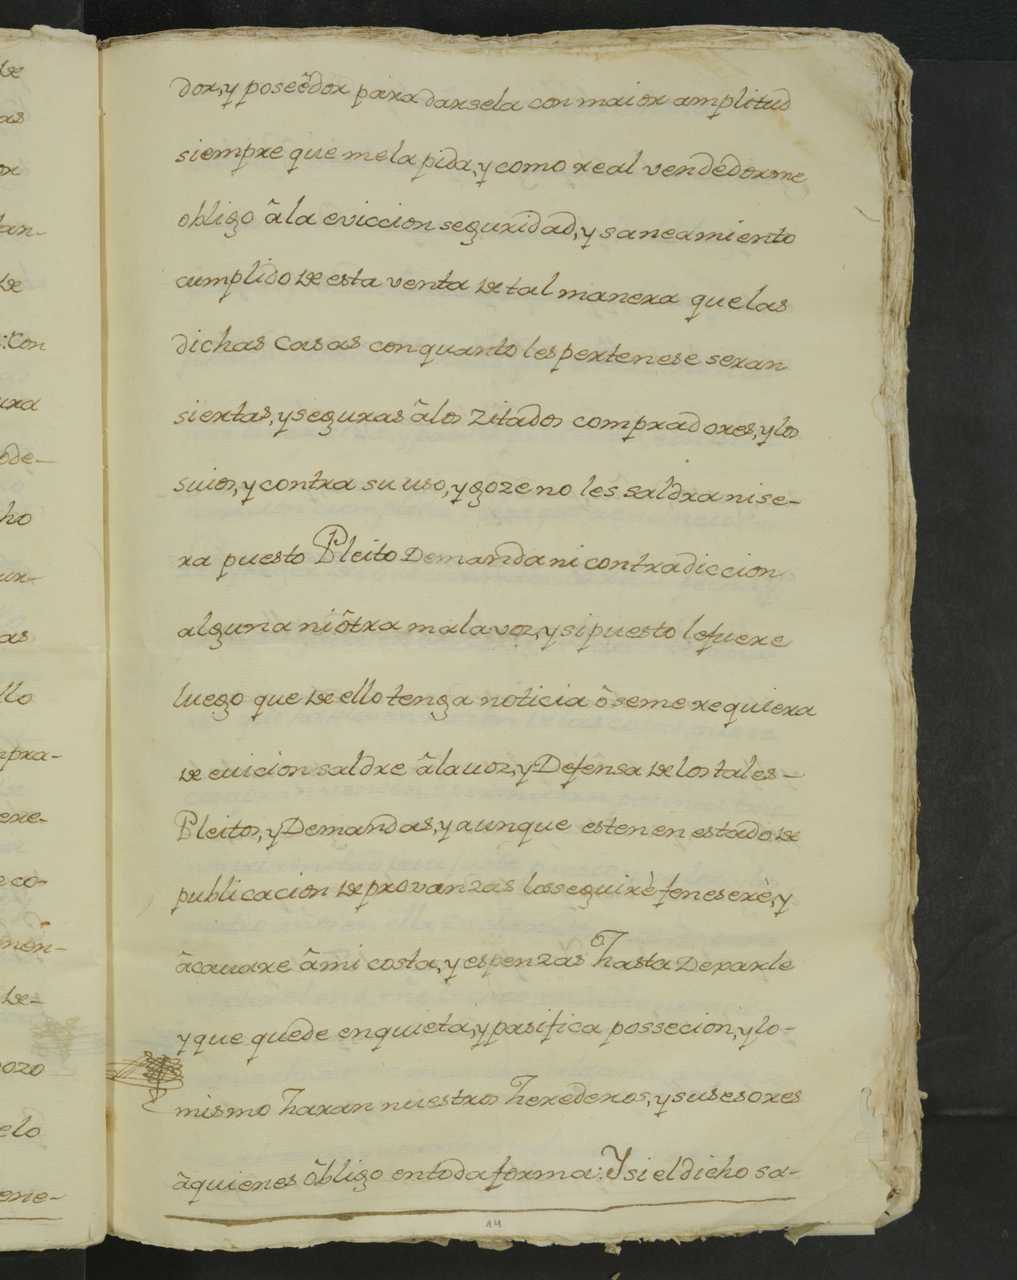 dor, y poseêdor para darsela con maior amplitud
siempre que mela pida, y como real vendedor me
obligo âla eviccion seguridad, y saneamiento
cumplido de esta venta de tal manera que las
dichas Casas con quanto les pertenese seran
siertas, y seguras âlos Zitados compradores, y los
suios, y contra su uso, y goze no les saldra ni se-
ra puesto Pleito Demanda ni contradiccion
alguna ni ôtra mala voz, y si puesto le fuere
luego que de ello tenga noticia ô se me requiera
de evicion saldre âla voz, y Defensa de los tales-
Pleitos, y Demandas, y aunque esten en estado de
publicacion de provanzas los seguirè feneserè, y
âcavare âmi costa, y espenzas hasta Dexarle
y que quede en quieta, y pasifica possecion, y lo-
mismo haran nuestros herederos, y susesores
âquienes ôbligo en toda forma: Y si el dicho sa-
14
de
as
or
tan-
de
: Con
ura
ode-
ho
ur-
as
llo
mpra-
ere-
eco-
nen-
de-
ozo
elo
ene-